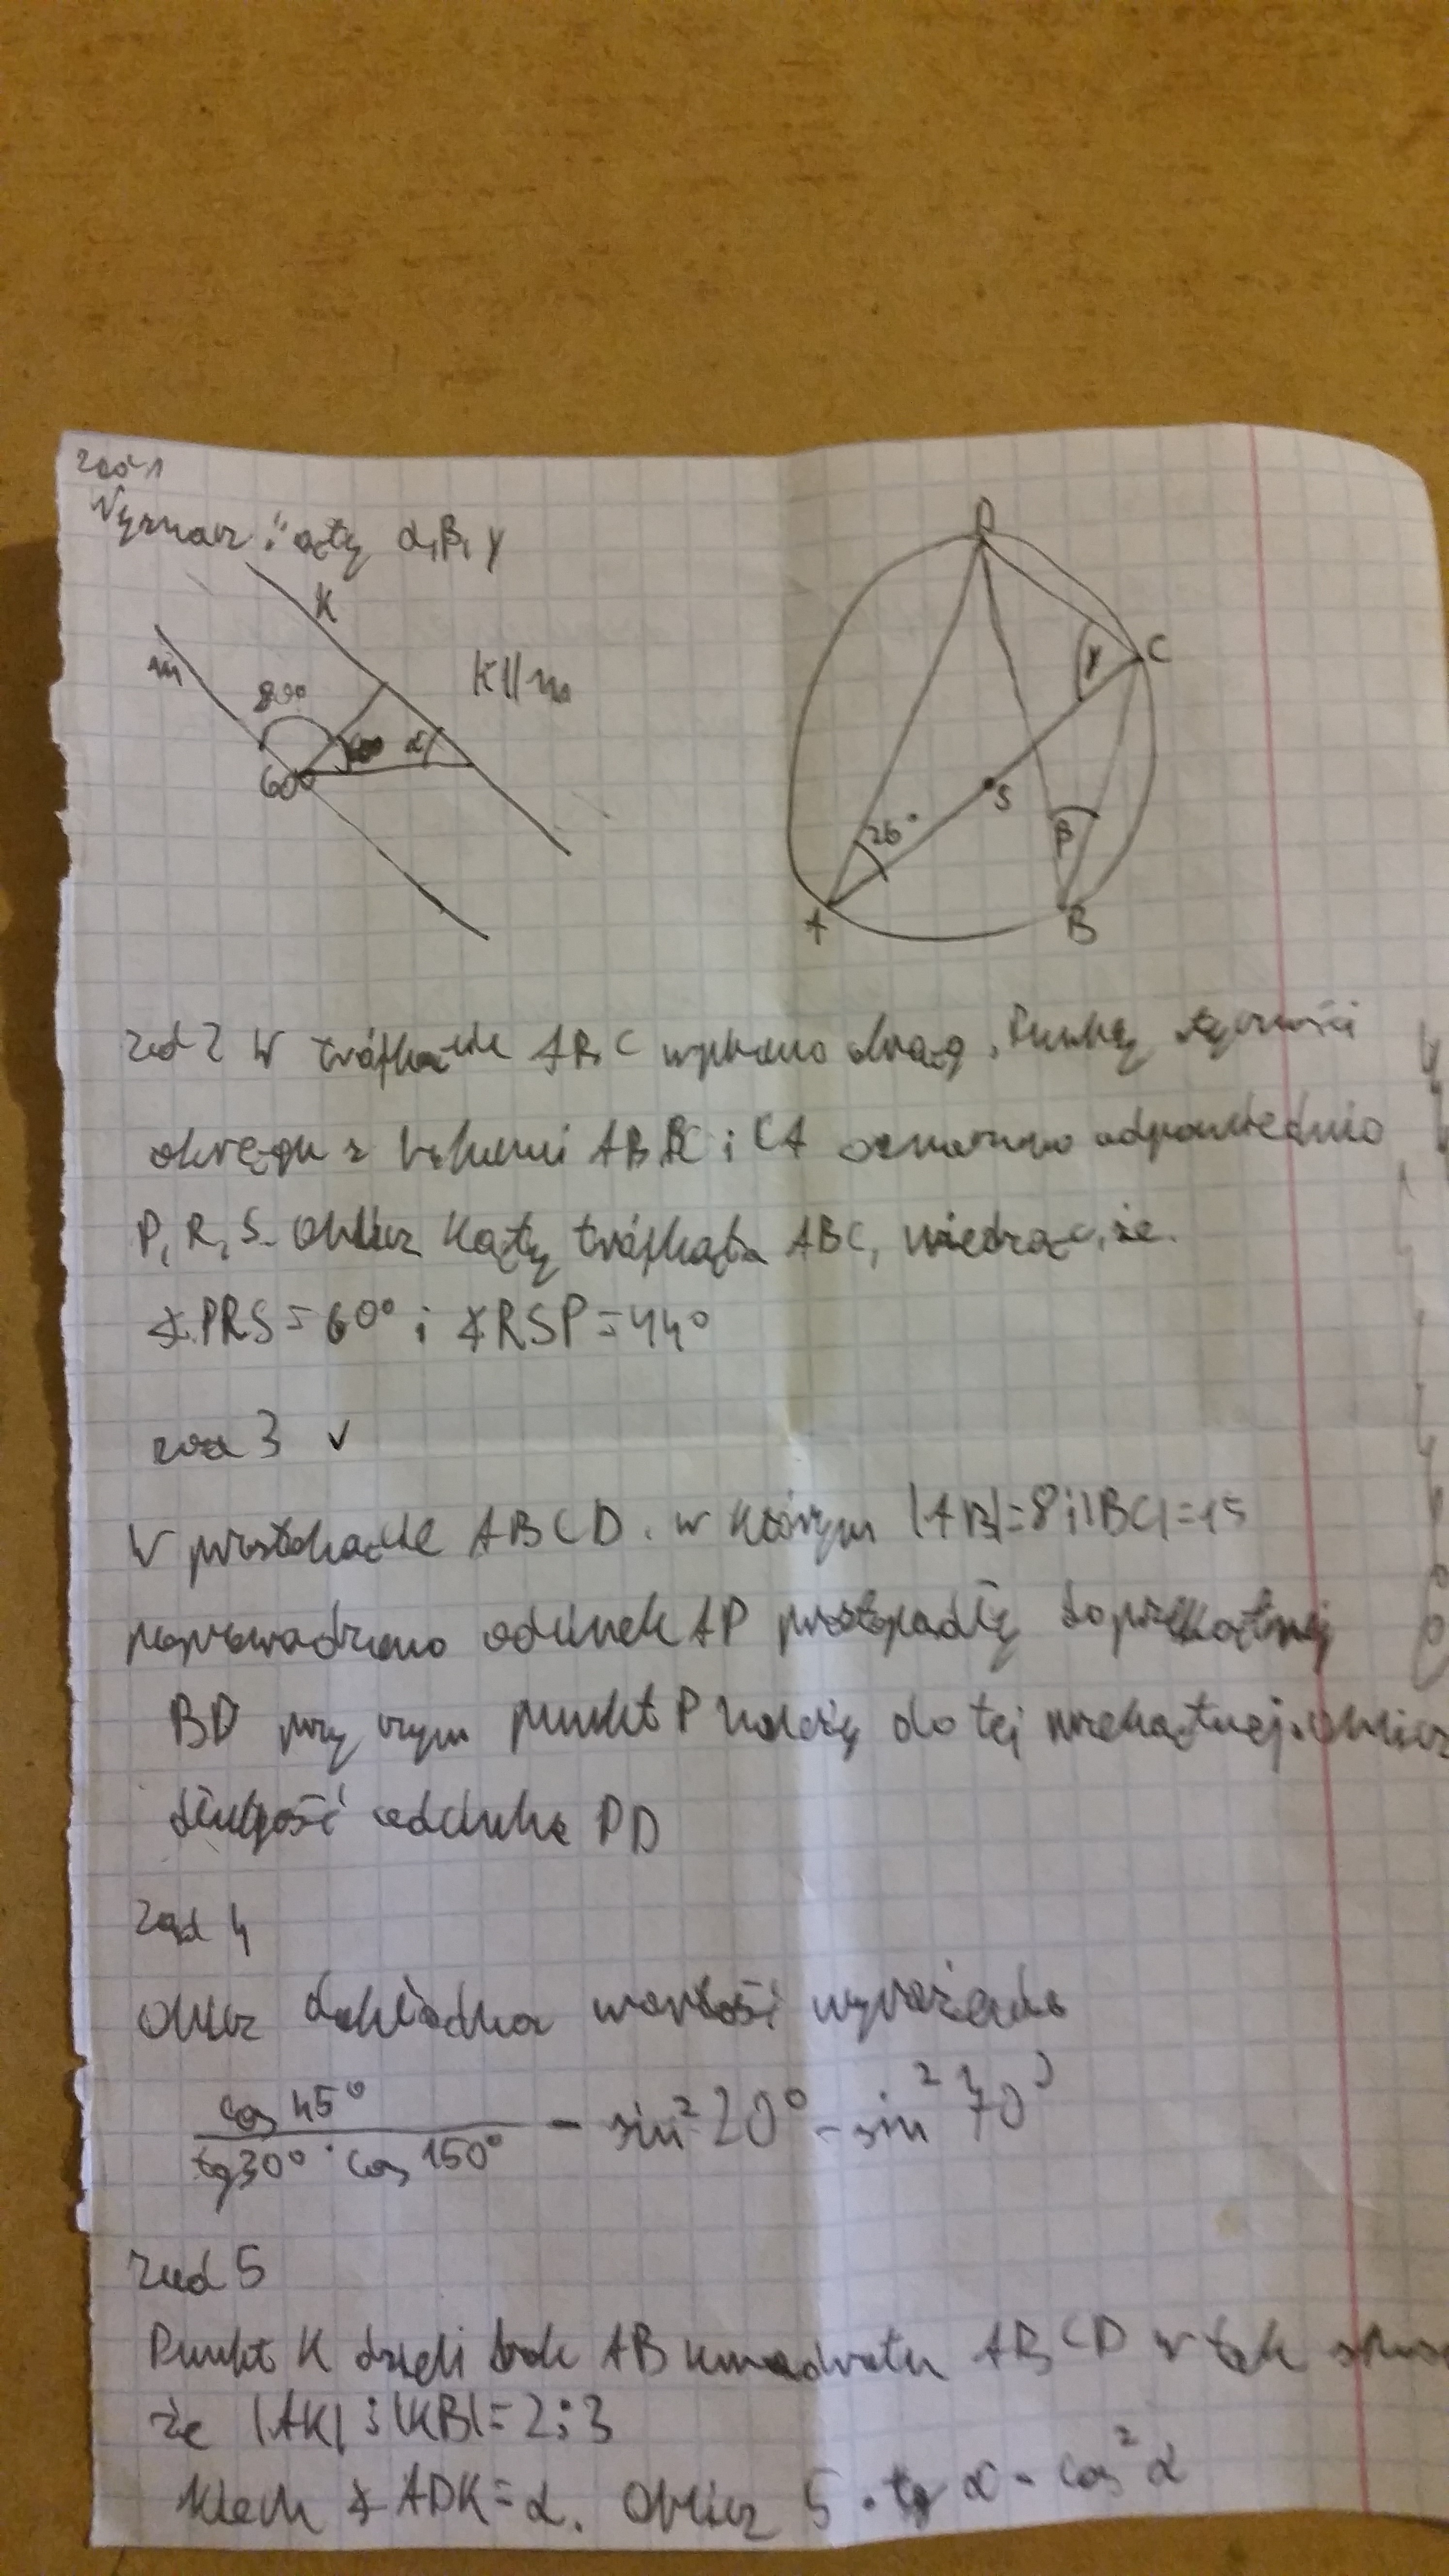 zad 1
Wyznacz kąty α, β, γ
K
m
K||m
80°
60°
α
D
C
γ
S
26°
β
A
B
zad 2 W trójkącie ABC wpisano okrąg. Punkty styczności
okręgu z bokami AB BC i CA oznaczono odpowiednio
P, R, S. Oblicz kąty trójkąta ABC, wiedząc, że.
∡PRS = 60° i ∡RSP = 44°
zad 3 ✓
W prostokącie ABCD. w którym |AB|=8 i |BC|=15
poprowadzono odcinek AP prostopadły do przekątnej
BD przy czym punkt P należy do tej przekątnej. Oblicz
długość odcinka PD
zad 4
Oblicz dokładna wartość wyrażenia
cos 45°
tg30° · cos 150°
- sin² 20° - sin² 70°
zad 5
Punkt K dzieli bok AB kwadratu ABCD w tak
że |AK| : |KB| = 2:3
Niech ∡ ADK = α. Oblicz 5 · tg α - cos² α